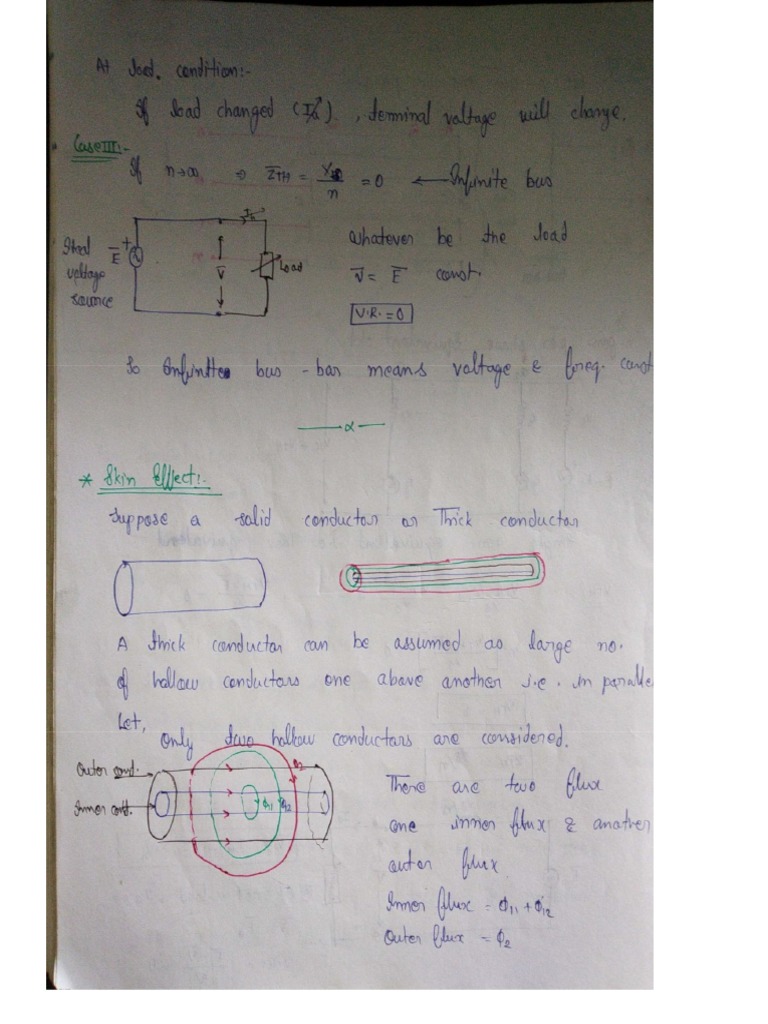 At load. condition:-
If load changed (I↗), terminal voltage will change.
Case III:-
If n→∞ ⇒ Z̄TH = /n = 0 ← Infinite bus
Ideal voltage source
Ē
+
V̄
Load
Whatever be the load
V̄ = Ē const.
V.R. = 0
So Infinite bus-bar means voltage & freq. const
—— α ——
* Skin Effect:-
Suppose a solid conductor or Thick conductor
A thick conductor can be assumed as large no.
of hollow conductors one above another i.e. in paralle
Let,
Only two hollow conductors are considered.
Outer cond.
Inner cond.
ϕ11
ϕ12
ϕ2
There are two flux
one inner flux & another
outer flux
Inner flux = ϕ11 + ϕ12
Outer flux = ϕ2